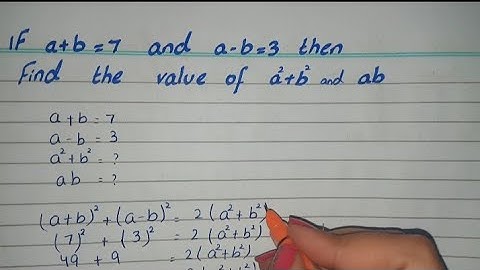 IF a+b=7 and a-b=3 then
Find the value of a²+b² and ab
a+b=7
a-b=3
a²+b²=?
ab=?
(a+b)²+(a-b)²=2(a²+b²)
(7)²+(3)²=2(a²+b²)
49+9=2(a²+b²)